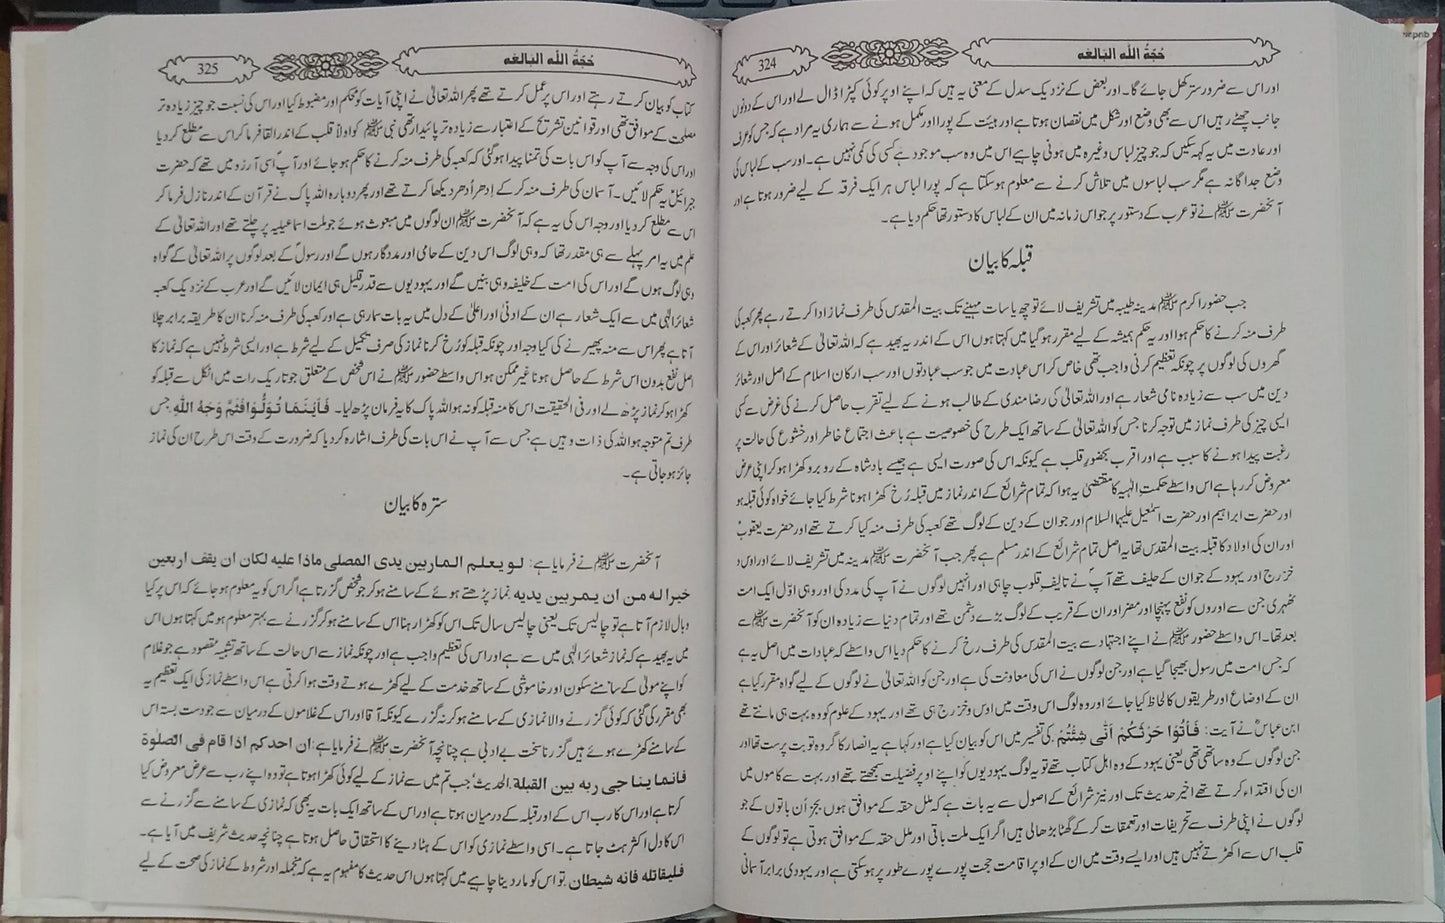 324
حُجَّةُ اللّٰه البالغه
اور اس سے ضرور ستر کھل جائے گا۔ اور بعض کے نزدیک سدل کے معنی یہ ہیں کہ اپنے اوپر کوئی کپڑا ڈال لے اور اس کے دونوں
جانب چھٹے رہیں اس سے بھی وضع اور شکل میں نقصان ہوتا ہے اور ہیئت کے پورا اور مکمل ہونے سے ہماری یہ مراد ہے کہ جس کو عرف
اور عادت میں یہ کہہ سکیں کہ جو چیز لباس وغیرہ میں ہونی چاہیے اس میں وہ سب موجود ہے کسی کی کمی نہیں ہے۔ اور سب کے لباس کی
وضع جداگانہ ہے مگر سب لباسوں میں تلاش کرنے سے معلوم ہو سکتا ہے کہ پورا لباس ہر ایک فرقہ کے لیے ضرور ہوتا ہے اور
آنحضرت ﷺ نے تو عرب کے دستور پر جو اس زمانہ میں ان کے لباس کا دستور تھا حکم دیا ہے۔
قبلہ کا بیان
جب حضور اکرم ﷺ مدینہ طیبہ میں تشریف لائے تو چھ یا سات مہینے تک بیت المقدس کی طرف نماز ادا کرتے رہے پھر کعبہ کی
طرف منہ کرنے کا حکم ہوا اور یہ حکم ہمیشہ کے لیے مقرر ہو گیا میں کہتا ہوں اس کے اندر یہ بھید ہے کہ اللہ تعالیٰ کے شعائر اور اس کے
گھروں کی لوگوں پر چونکہ تعظیم کرنی واجب تھی خاص کر اس عبادت میں جو سب عبادتوں اور سب ارکان اسلام کے اصل اور شعائر
دین میں سب سے زیادہ نامی شعار ہے اور اللہ تعالیٰ کی رضامندی کے طالب ہونے کے لیے تقرب حاصل کرنے کی غرض سے کسی
ایسی چیز کی طرف نماز میں توجہ کرنا جس کو اللہ تعالیٰ کے ساتھ ایک طرح کی خصوصیت ہے باعث اجتماع خاطر اور خشوع کی حالت پر
رغبت پیدا ہونے کا سبب ہے اور اقرب بحضور قلب ہے کیونکہ اس کی صورت ایسی ہے جیسے بادشاہ کے روبرو کھڑا ہو کر اپنی عرض
معروض کر رہا ہے اس واسطے حکمت الٰہیہ کا مقتضیٰ یہ ہوا کہ تمام شرائع کے اندر نماز میں قبلہ رُخ کھڑا ہونا شرط کیا جائے خواہ کوئی قبلہ ہو
اور حضرت ابراہیم اور حضرت اسمٰعیل علیہما السلام اور جو ان کے دین کے لوگ تھے کعبہ کی طرف منہ کیا کرتے تھے اور حضرت یعقوبؑ
اور ان کی اولاد کا قبلہ بیت المقدس تھا یہ اصل تمام شرائع کے اندر مسلم ہے پھر جب آنحضرت ﷺ مدینہ میں تشریف لائے اور اوس و
خزرج اور یہود کے جو ان کے حلیف تھے آپؐ نے تالیف قلوب چاہی اور انہیں لوگوں نے آپ کی مدد کی اور وہی اوّل ایک امت
ٹھہری جن سے اوروں کو نفع پہنچا اور مضر اور ان کے قریب کے لوگ بڑے دشمن تھے اور تمام دنیا سے زیادہ ان کو آنحضرت ﷺ سے
بعد تھا۔ اس واسطے حضور ﷺ نے اپنے اجتہاد سے بیت المقدس کی طرف رخ کرنے کا حکم دیا اس واسطے کہ عبادات میں اصل یہ ہے
کہ جس امت میں رسول بھیجا گیا ہے اور جن لوگوں نے اس کی معاونت کی ہے اور جن کو اللہ تعالیٰ نے لوگوں کے لیے گواہ مقرر کیا ہے
ان کے اوضاع اور طریقوں کا لحاظ کیا جائے اور وہ لوگ اس وقت میں اوس و خزرج ہی تھے اور یہود کے علوم کو وہ بہت ہی مانتے تھے
ابن عباسؓ نے آیت: فَأْتُوْا حَرْثَكُمْ اَنّٰى شِئْتُمْ کی تفسیر میں اس کو بیان کیا ہے اور کہا ہے یہ انصار کا گروہ تو بت پرست تھا اور
جن لوگوں کے وہ ساتھی تھی یعنی یہود کے وہ اہل کتاب تھے تو یہ لوگ یہودیوں کو اپنے اوپر فضیلت سمجھتے تھے اور بہت سے کاموں میں
ان کی اقتداء کرتے تھے اخیر حدیث تک اور نیز شرائع کے اصول سے یہ بات ہے کہ ملل حقہ کے موافق ہوں بجز اُن باتوں کے جو
لوگوں نے اپنی طرف سے تحریفات اور تعمقات کر کے گھٹا بڑھا لی ہیں اگر ایک ملت باقی اور ملل حقہ کے موافق ہوتی ہے تو لوگوں کے
قلب اس سے اکھڑتے نہیں ہیں اور ایسے وقت میں ان کے اوپر اقامت حجت پورے پورے طور پر ہو سکتی ہے اور یہودی برابر آسمانی
325
حُجَّةُ اللّٰه البالغه
کتاب کو بیان کرتے رہتے اور اس پر عمل کرتے تھے پھر اللہ تعالیٰ نے اپنی آیات کو محکم اور مضبوط کیا اور اس کی نسبت جو چیز زیادہ تر
مصلحت کے موافق تھی اور قوانین تشریح کے اعتبار سے زیادہ تر پائیدار تھی نبی ﷺ کو اولاً قلب کے اندر القا فرما کر اس سے مطلع کر دیا
اور اس کی وجہ سے آپ کو اس بات کی تمنا پیدا ہو گئی کہ کعبہ کی طرف منہ کرنے کا حکم ہو جائے اور آپؐ اسی آرزو میں تھے کہ حضرت
جبرائیلؑ یہ حکم لائیں۔ آسمان کی طرف منہ کر کے اِدھر اُدھر دیکھا کرتے تھے اور پھر دوبارہ اللہ پاک نے قرآن کے اندر نازل فرما کر
اس سے مطلع کر دیا اور وجہ اس کی یہ ہے کہ آنحضرت ﷺ ان لوگوں میں مبعوث ہوئے جو ملت اسماعیلیہ پر چلتے تھے اور اللہ تعالیٰ کے
علم میں یہ امر پہلے سے ہی مقدر تھا کہ وہی لوگ اس دین کے حامی اور مددگار ہوں گے اور رسولؐ کے بعد لوگوں پر اللہ تعالیٰ کے گواہ
وہی لوگ ہوں گے اور اس کی امت کے خلیفہ وہی بنیں گے اور یہودیوں سے قدر قلیل ہی ایمان لائیں گے اور عرب کے نزدیک کعبہ
شعائر الٰہی میں سے ایک شعار ہے ان کے ادنیٰ اور اعلیٰ کے دل میں یہ بات سما رہی ہے اور کعبہ کی طرف منہ کرنا ان کا طریقہ برابر چلا
آتا ہے پھر اس سے منہ پھیرنے کی کیا وجہ اور چونکہ قبلہ کو رُخ کرنا نماز کی صرف تکمیل کے لیے شرط ہے اور ایسی شرط نہیں ہے کہ نماز کا
اصل نفع بدون اس شرط کے حاصل ہونا غیر ممکن ہو اس واسطے حضور ﷺ نے اس شخص کے متعلق جو تاریک رات میں اٹکل سے قبلہ کو
کھڑا ہو کر نماز پڑھ لے اور فی الحقیقت اس کا منہ قبلہ کو نہ ہو اللہ پاک کا یہ فرمان پڑھ لیا۔ فَاَيْنَمَا تُوَلُّوْا فَثَمَّ وَجْهُ اللّٰهِ جس
طرف تم متوجہ ہو اللہ کی ذات وہیں ہے جس سے آپ نے اس بات کی طرف اشارہ کر دیا کہ ضرورت کے وقت اس طرح ان کی نماز
جائز ہو جاتی ہے۔
سترہ کا بیان
آنحضرت ﷺ نے فرمایا ہے: لو يعلم المار بين يدى المصلى ماذا عليه لكان ان يقف اربعين
خيرا له من ان يمر بين يديه نماز پڑھتے ہوئے کے سامنے ہو کر جو شخص گزرتا ہے اگر اس کو یہ معلوم ہو جائے کہ اس پر کیا
وبال لازم آتا ہے تو چالیس تک یعنی چالیس سال تک اس کو کھڑا رہنا اس کے سامنے ہو کر گزرنے سے بہتر معلوم ہو میں کہتا ہوں اس
میں یہ بھید ہے کہ نماز شعائر الٰہی میں سے ہے اور اس کی تعظیم واجب ہے اور چونکہ نماز سے اس حالت کے ساتھ تشبیہ مقصود ہے جو غلام
کو اپنے مولیٰ کے سامنے سکون اور خاموشی کے ساتھ خدمت کے لیے کھڑے ہوتے وقت ہوا کرتی ہے اس واسطے نماز کی ایک تعظیم یہ
بھی مقرر کی گئی کہ کوئی گزرنے والا نمازی کے سامنے ہو کر نہ گزرے کیونکہ آقا اور اس کے غلاموں کے درمیان سے جو دست بستہ اس
کے سامنے کھڑے ہوئے ہیں گزرنا سخت بے ادبی ہے چنانچہ آنحضرت ﷺ نے فرمایا ہے: ان احدكم اذا قام فى الصلوٰة
فانما يناجى ربه بين القبلة. الحدیث: جب تم میں سے نماز کے لیے کوئی کھڑا ہوتا ہے تو وہ اپنے رب سے عرض معروض کیا
کرتا ہے اور اس کا رب اس کے اور قبلہ کے درمیان ہوتا ہے اور اس کے ساتھ ایک بات یہ بھی کہ نمازی کے سامنے سے گزرنے سے
اس کا دل اکثر ہٹ جاتا ہے۔ اسی واسطے نمازی کو اس کے ہٹا دینے کا استحقاق حاصل ہوتا ہے چنانچہ حدیث شریف میں آیا ہے۔
فليقاتله فانه شيطان. تو اس کو مار دینا چاہیے میں کہتا ہوں اس حدیث کا مفہوم یہ ہے کہ منجملہ اور شروط کے نماز کی صحت کے لیے